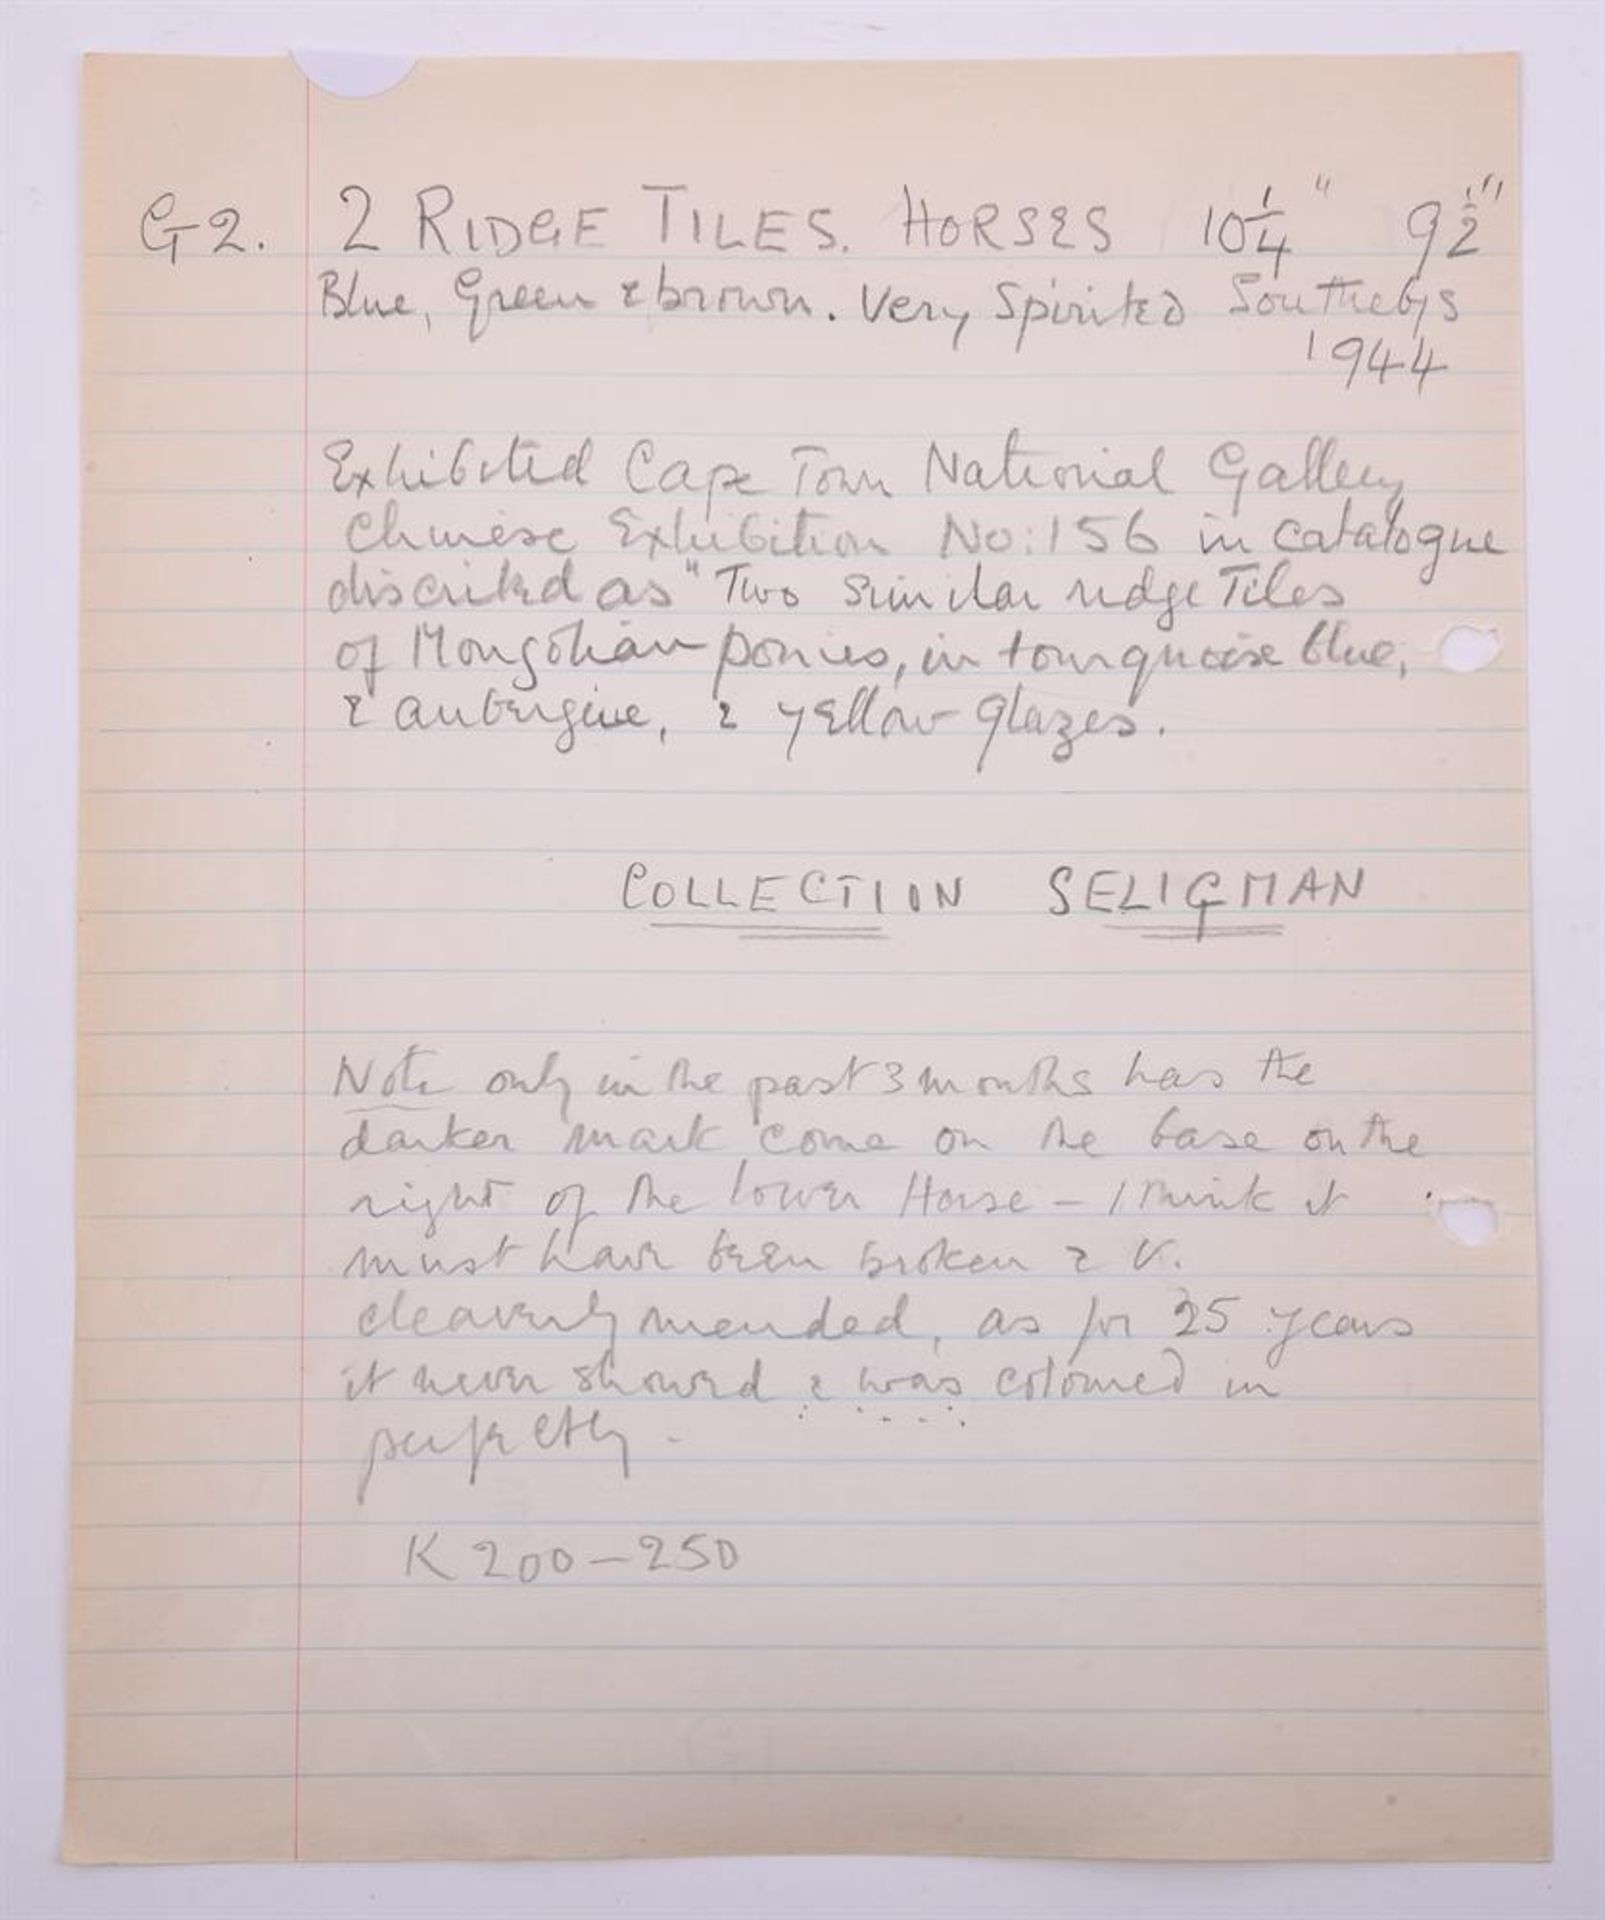 G2. 2 RIDGE TILES. HORSES 10¼" 9½"
Blue, Green & brown. Very Spirited Southebys
1944
Exhibited Cape Town National Gallery
Chinese Exhibition No: 156 in catalogue
discribed as "Two similar ridge Tiles
of Mongolian ponies, in tourquoise blue,
& aubergine, & yellow glazes.
COLLECTION SELIGMAN
Note only in the past 3 months has the
darker mark come on the base on the
right of the lower Horse – I think it
must have been broken & V.
cleaverly mended, as for 25 years
it never showed & was coloured in
perfectly.
K 200–250